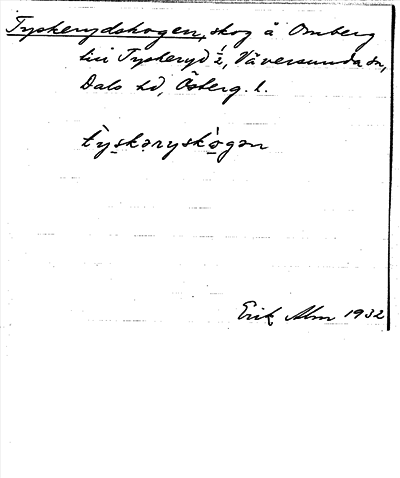 Tyskerydskogen, skog å Omberg
till Tyskeryd ½, Väversunda sn,
Dals hd, Österg. l.
tỳskəryskò̱gən
Erik Alm 1932